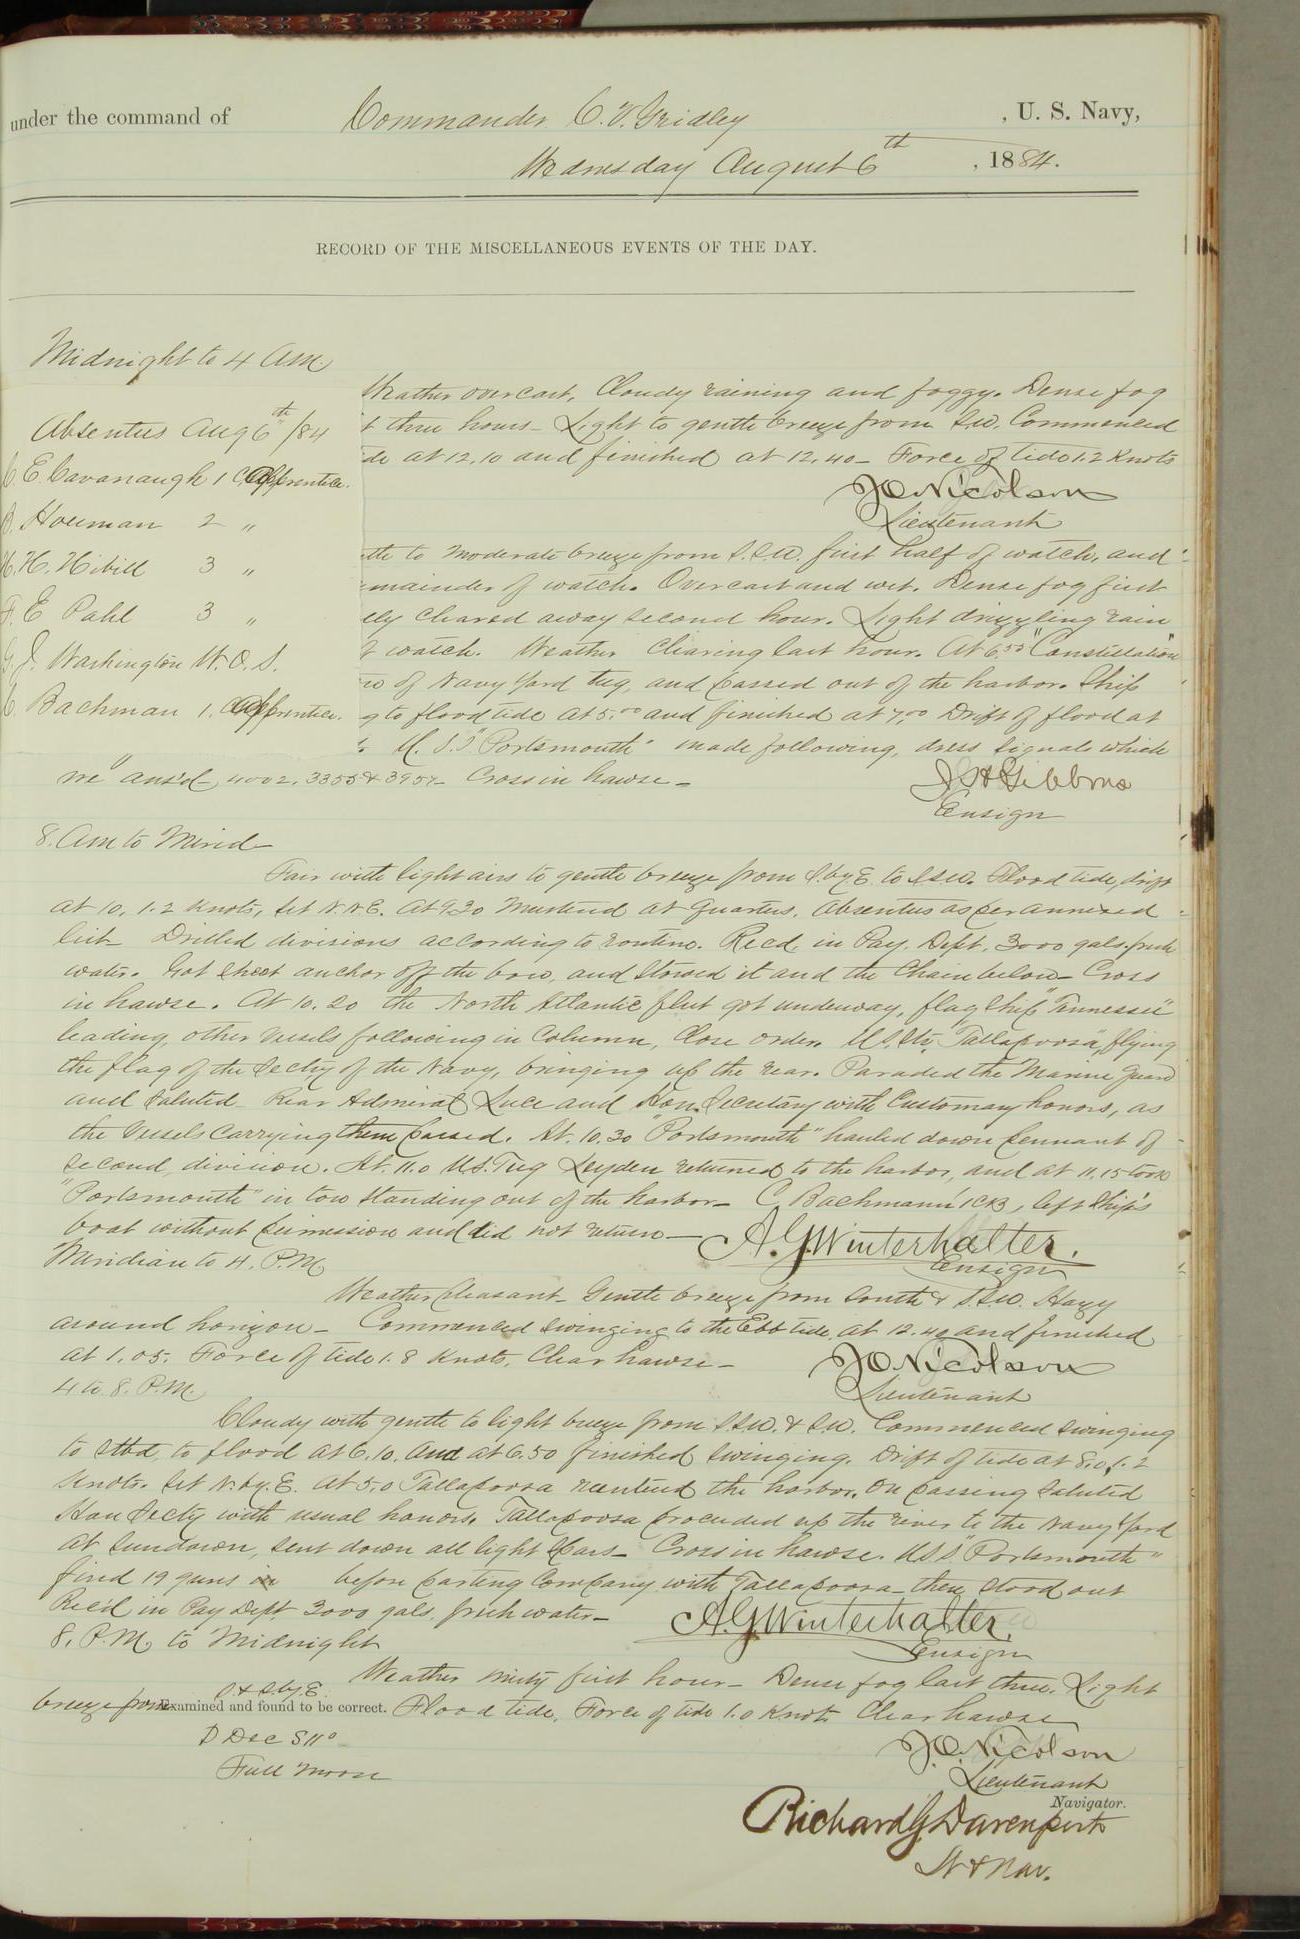 under the command of Commander C. V. Gridley , U. S. Navy,
Wednesday August 6th , 1884.
RECORD OF THE MISCELLANEOUS EVENTS OF THE DAY.
Midnight to 4 AM
Weather overcast, Cloudy raining and foggy. Dense fog
t three hours - Light to gentle breeze from S.W. Commenced
ide at 12.10 and finished at 12.40 - Force of tide 1.2 Knots
J O Nicolson
Lieutenant
Absentees Aug 6th /84
C. E Cavanaugh 1 C Apprentice.
Houman 2 "
H. H. Hibill 3 "
F. E Pahl 3 "
G. J. Washington W. O. S.
C. Bachman 1. C Apprentice.
ntle to moderate breeze from S.S.W. first half of watch, and
emainder of watch. Overcast and wet. Dense fog first
ely cleared away second hour. Light drizzling rain
f watch. Weather Clearing last hour. At 6.55 "Constellation"
ow of Navy Yard tug, and passed out of the harbor. Ship
g to flood tide at 5.00 and finished at 7.00 Drift of flood at
U. S. S "Portsmouth" made following, dress signals which
we ans'd - 4002, 3355 & 3957 - Cross in hawse -
J H Gibbons
Ensign
8. Am to Merid -
Fair with light airs to gentle breeze from S. by. E. to S.S.W. Flood tide, drift
at 10, 1.2 Knots, Set N.N.E. At 9.30 Mustered at Quarters. Absentees as per annexed
list - Drilled divisions according to routine. Rec'd, in Pay. Dept. 3000 gals. fresh
water. Got sheet anchor off the bow, and stowed it and the Chain below - Cross
in hawse. At 10.20 the North Atlantic fleet got underway, flag ship "Tennessee"
leading, other vessels following in Column, Close order. U.S. Str. "Tallapoosa", flying
the flag of the Sec'ty of the Navy, bringing up the rear. Paraded the Marine Guard
and saluted Rear Admiral Luce and Hon. Secretary with Customary honors, as
the vessels carrying them passed. At 10.30 "Portsmouth" hauled down pennant of
second, division. At 11.0 U.S. Tug Leyden returned to the harbor, and at 11.15 took
"Portsmouth" in tow standing out of the harbor - C. Bachmann 1 C B, left ship's
boat without permission and did not return -
A. G. Winterhalter.
Ensign
Meridian to 4. P.M.
Weather pleasant - Gentle breeze from South & S.S.W. Hazy
around horizon - Commenced swinging to the Ebb tide at 12.40 and finished
at 1.05. Force of tide 1.8 Knots. Clear hawse -
J O Nicolson
Lieutenant
4 to 8. P.M.
Cloudy with gentle to light breeze from S.S.W. & S.W. Commenced swinging
to stbd, to flood at 6.10. and at 6.50 finished swinging. Drift of tide at 8.0, 1.2
Knots. Set N. by. E. At 5.0 Tallapoosa reentered the harbor. On passing saluted
Hon Secty with usual honors. Tallapoosa proceeded up the river to the Navy Yard
At sundown, sent down all light spars - Cross in hawse. U.S.S. "Portsmouth"
fired 19 guns in before parting Company with Tallapoosa - then stood out
Rec'd in Pay Dept 3000 gals. fresh water -
A. G. Winterhalter.
Ensign
8. P.M. to Midnight
Weather misty first hour - Dense fog last three. Light
breeze from S. & S. by. E. Flood tide. Force of tide 1.0 Knot. Clear hawse
Examined and found to be correct.
J. O. Nicolson
Lieutenant
D Dec S 11°
Full moon
Navigator.
Richard G. Davenport
Lt & Nav.